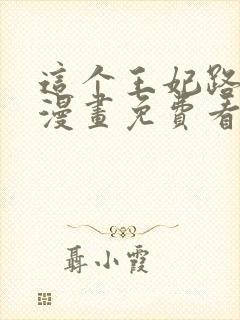 這个王妃路
漫畫免費看
聶小霞